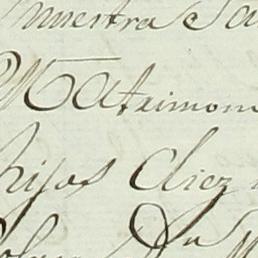 muestra Sa
Matrimon
hijos diez